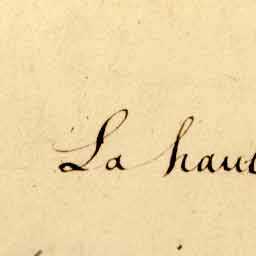 La haut